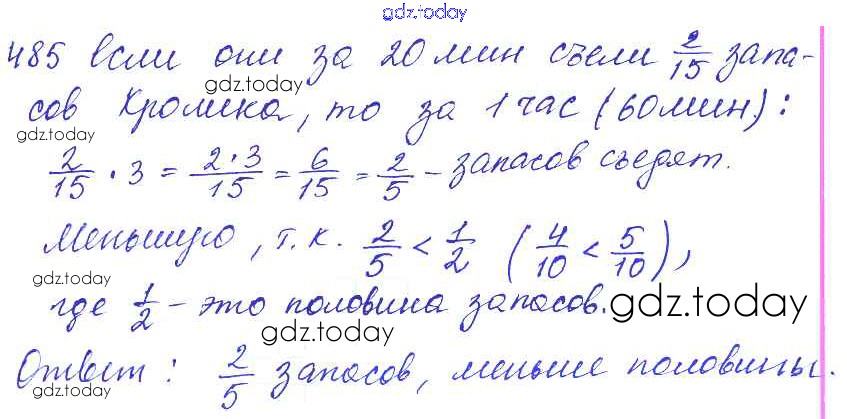 gdz.today
485 Если они за 20 мин съели 2/15 запа-
gdz.today
сов Кролика, то за 1 час (60 мин):
gdz.today
2/15 · 3 = 2·3/15 = 6/15 = 2/5 – запасов съедят.
Меньшую, т.к. 2/5 < 1/2 (4/10 < 5/10),
gdz.today
где 1/2 – это половина запасов.
gdz.today
gdz.today
Ответ: 2/5 запасов, меньше половины.
gdz.today